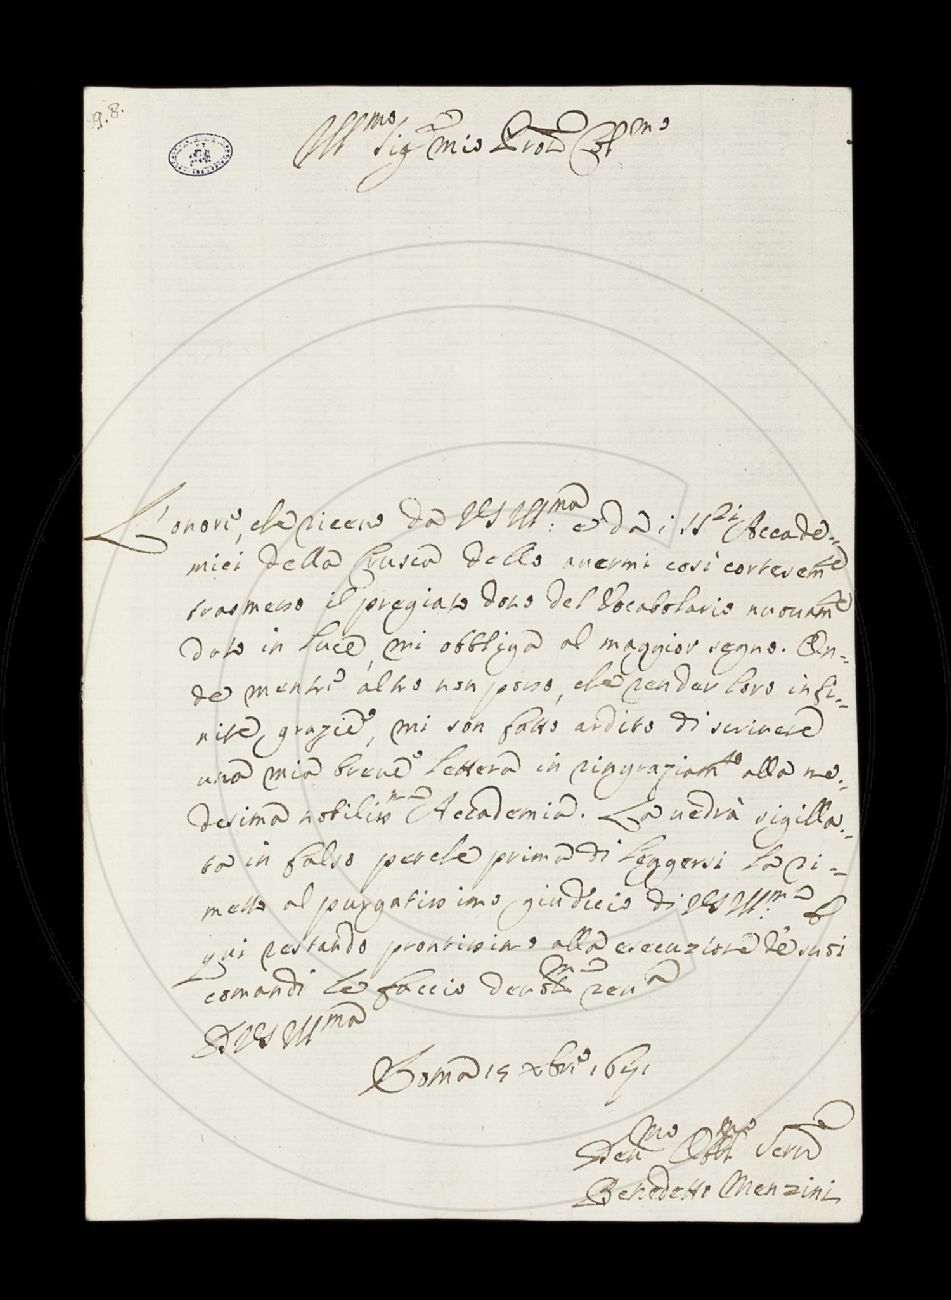 89.8.
Ill.mo Sig.r mio Pron Col.mo
L'onore, che riceuo da VS Ill.ma e da i SS.ri Accade=
mici della Crusca dello auermi così cortesem.te
trasmesso il pregiato dono del Vocabolario nuouam.te
dato in luce, mi obbliga al maggior segno. On=
de mentre altro non posso, che render loro infi=
nite grazie, mi son fatto ardito di scriuere
una mia breue lettera in ringraziam.to alla me=
desima nobiliss.ma Accademia. La uedrà sigilla=
ta in falso perche prima di leggersi la ri=
metto al purgatissimo giudicio di VS Ill.ma E
qui restando prontissimo alla esecuzione de suoi
comandi le faccio deuot.ma reu.a
Di VS Ill.ma
Roma 15 xbre 1691
Deu.mo Obbl.mo Seru
Benedetto Menzini